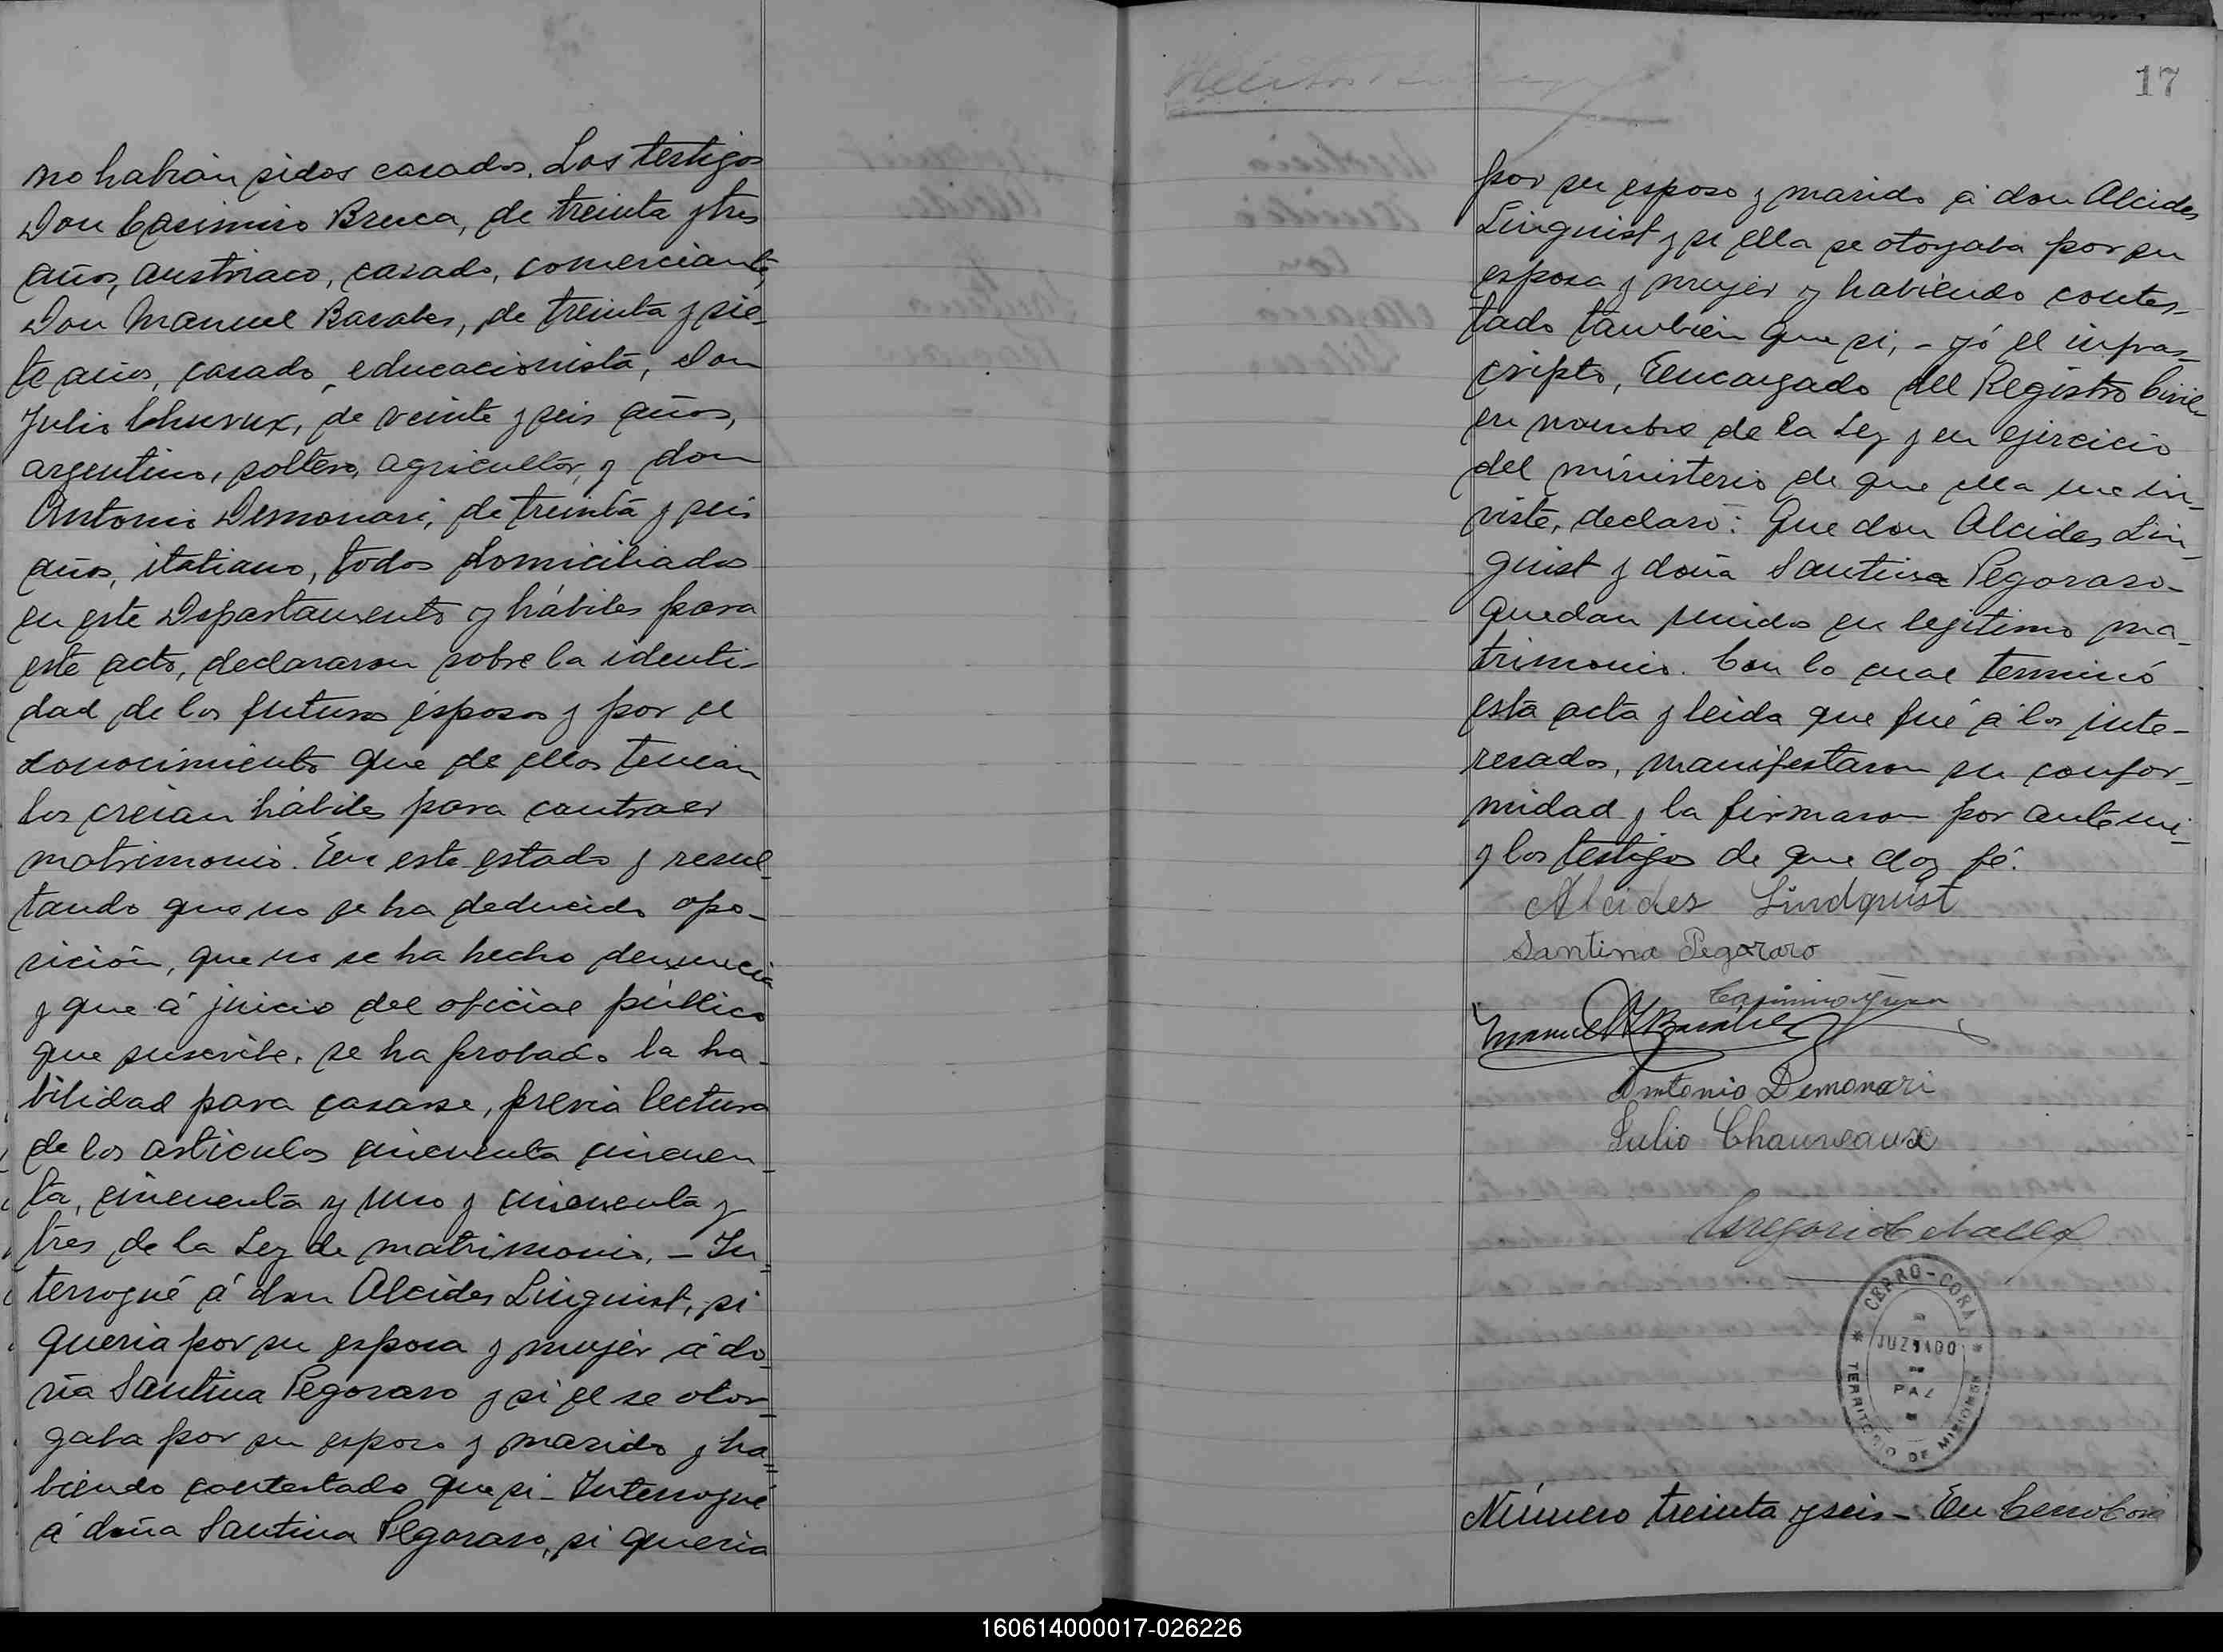 no habían sidos casados. Los testigos
Don Casimiro Bruca, de treinta y tres
años, austriaco, casado, comerciante,
Don Manuel Basabes, de treinta y sie-
te años, casado, educacionista, Don
Julio Chuvux, de veinte y seis años,
argentino, soltero, agricultor, y don
Antonio Demonari, de treinta y seis
años, italiano, todos domiciliados
en este Departamento y hábiles para
este acto, declararon sobre la identi-
dad de los futuros esposos y por el
conocimiento que de ellos tenian
los creian hábiles para contraer
matrimonio. En este estado y resul-
tando que no se ha deducido opo-
sición, que no se ha hecho denuncia
y que á juicio del oficial público
que suscribe, se ha probado la ha-
bilidad para casarse, previa lectura
de los articulos cincuenta cincuen-
ta, cincuenta y uno y cincuenta y
tres de la Ley de matrimonio. - In-
terrogué á don Alcides Linguist, si
queria por su esposa y mujer á do-
ña Santina Pegoraro y si el se otor-
gaba por su esposo y marido y ha-
biendo contestado que si - Interrogué
á doña Santina Pegoraro, si queria
17
por su esposo y marido á don Alcides
Linguist y si ella se otorgaba por su
esposa y mujer y habiendo contes-
tado también que si, - yó el infras-
cripto, Encargado del Registro Civil
en nombre de la Ley y en ejercicio
del ministerio de que ella me in-
viste, declaro: Que don Alcides Lin-
guist y doña Santina Pegoraro -
quedan unidos en legitimo ma-
trimonio. Con lo cual terminó
esta acta y leida que fué á los inte-
resados, manifestaron su confor-
midad y la firmaron por ante mi
y los testigos de que doy fé.
Alcides Lindquist
Santina Pegoraro
Casimiro
Manuel
Antonio Demonari
Julio Chauveaux
Gregorio
CERRO-CORA
JUZGADO
DE
PAZ
TERRITORIO DE MISIONES
Número treinta y seis - En Cerro Corá
160614000017-026226